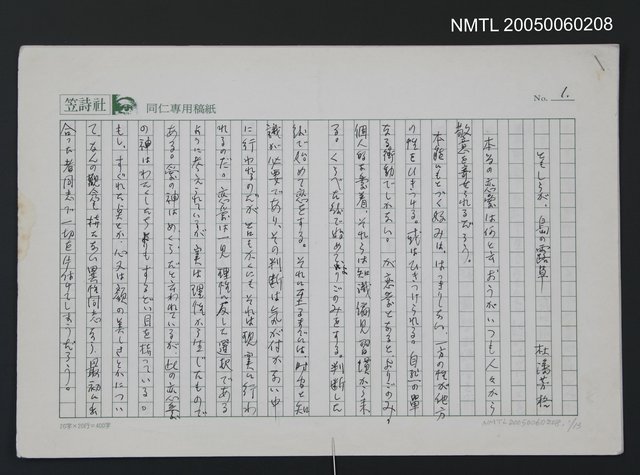 NMTL 20050060208
笠詩社
同仁専用稿紙
No. 1.
ともしびが、島の露草
杜潘芳格
本当の恋愛は何と言おうがいつも人々から
敬意を寄せられるだろう。
本能にもとづく好みは、はっきりしない、一方の性が他方
の性をひきつける。或はひきつけられる。自然の単
なる衝動でしかない。が恋愛となるとよりごのみ、
個人的な愛着、それらは知識偏見習慣から来
る。くらべた後で始めてよりごのみをする。判断した
後で始めて恋をする。それに至るまでには、時間と知
識が必要であり、その判断は気が付かない中
に行われるのだが とにもかくにも それは現実に行わ
れるのだ。恋愛は一見 理性に反した選択である
ように考えられているが、実は理性から生じたもので
ある。愛の神はめくらだと言われているが、此の恋愛
の神はわたくしたちよりもするどい目を持っている。
もし、すぐれた点とか、心又は顔の美しさとかについ
て、なんの観念も持たない異性同志なら、最初に出
合った者同志で一切を片付けてしまうだろう。
20字×20行=400字
NMTL20050060208, 1/13